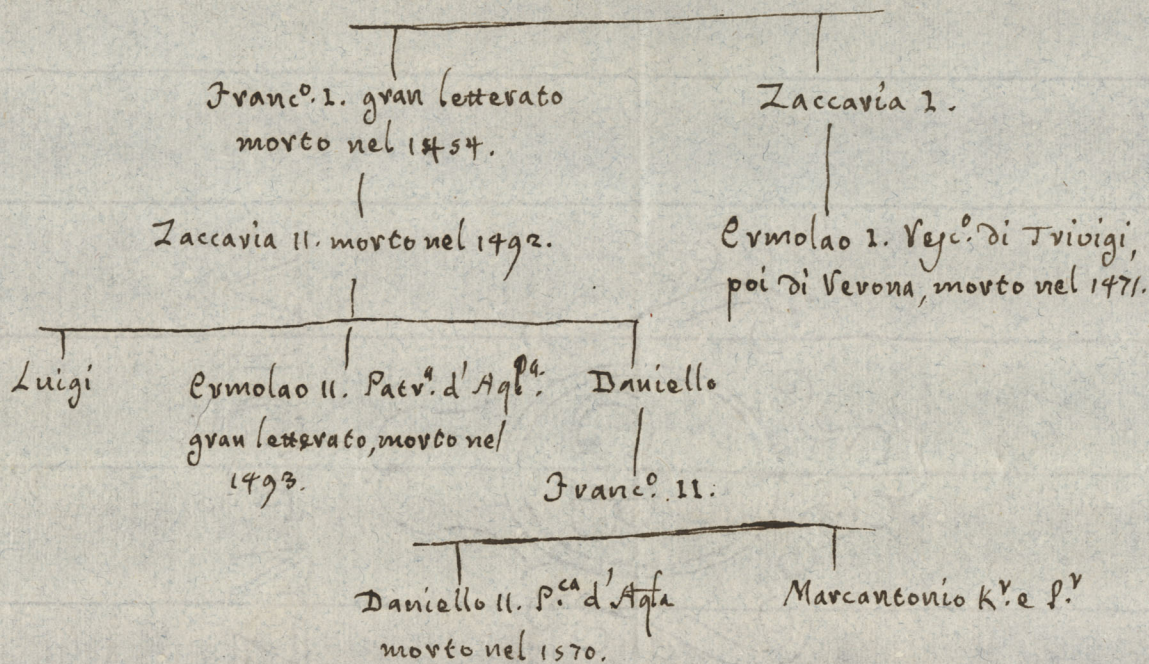 Francº. I. gran letterato
morto nel 1454.
Zaccaria I.
Zaccaria II. morto nel 1492.
Ermolao I. Vescº. di Trivigi,
poi di Verona, morto nel 1471.
Luigi
Ermolao II. Patrª. d'Aqlª.
gran letterato, morto nel
1493.
Daniello
Francº. II.
Daniello II. P.ca d'Aqla
morto nel 1570.
Marcantonio Kr. e P.r